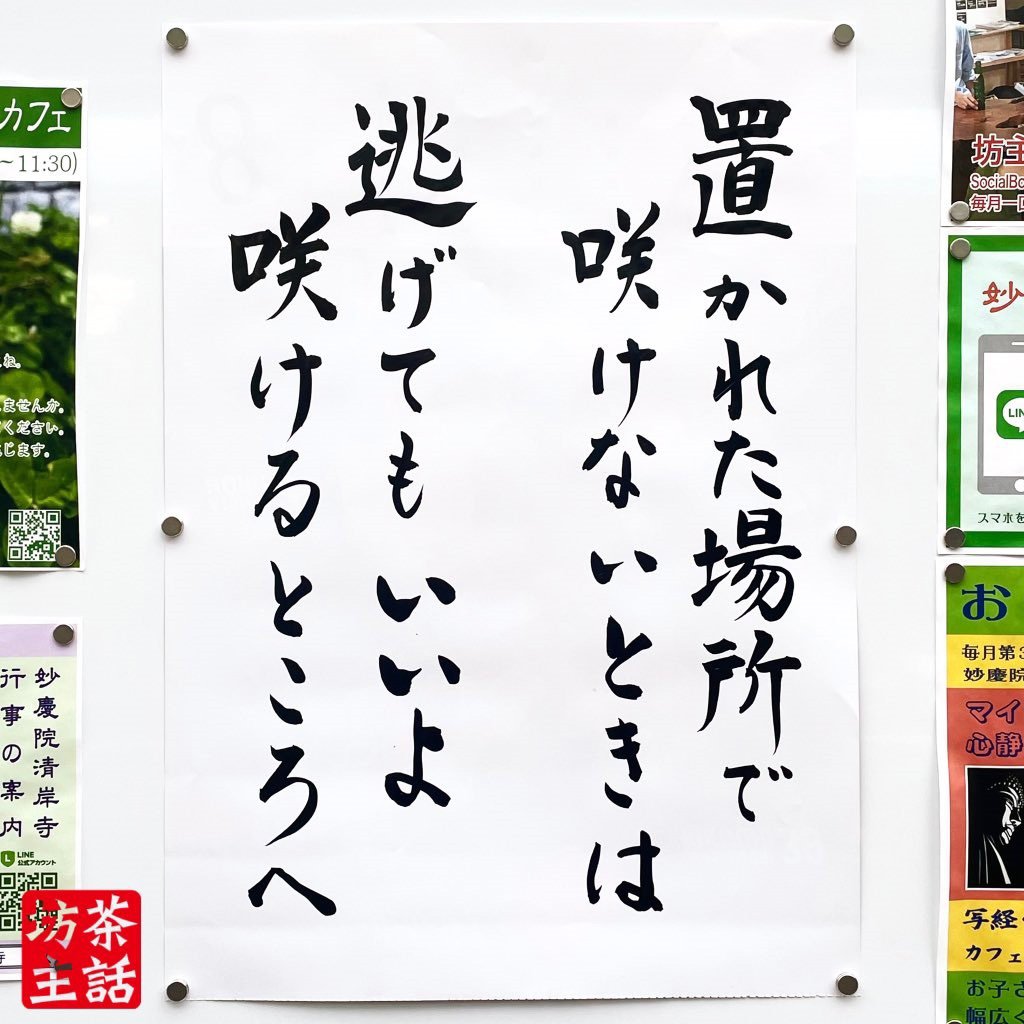 置かれた場所で
咲けないときは
逃げてもいいよ
咲けるところへ
カフェ
～11:30)
ね。
ませんか。
ください。
じます。
妙慶院清岸寺
行事の案内
LINE
公式アカウント
坊主
SocialBo
毎月一
妙
LIN
スマホを
お
毎月第3
妙慶院
マイ
心静
写経
カフェ
お子さ
幅広く
茶話
坊主